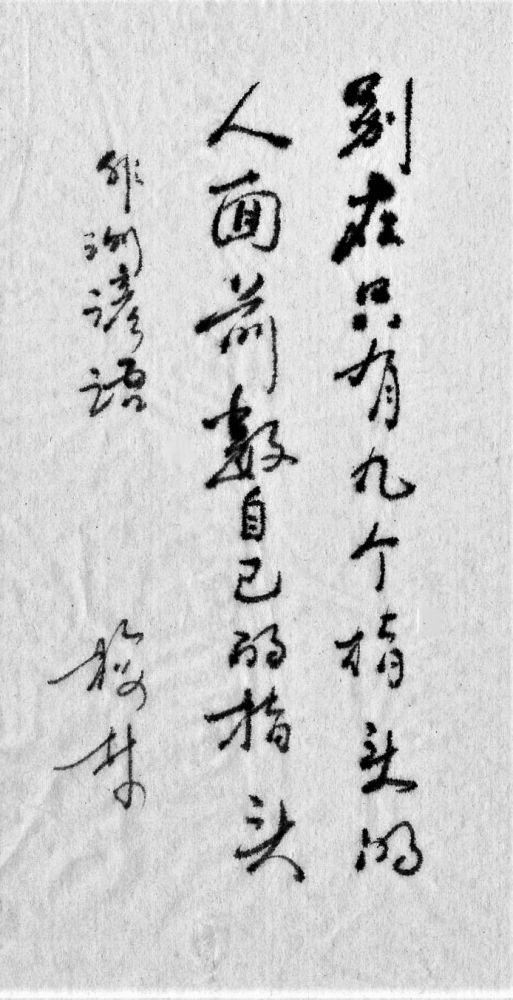 别在只有九个指头的
人面前数自己的指头
非洲谚语